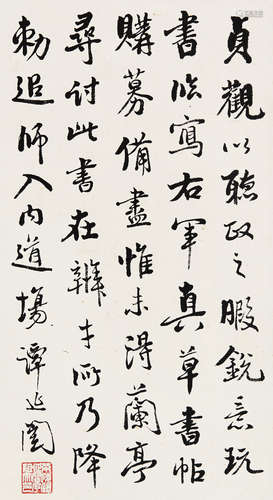 貞觀以聽政之暇銳意玩
書臨寫右軍真草書帖
購募備盡惟未得蘭亭
尋討此書在辯才所乃降
勅追師入內道場 譚延闓